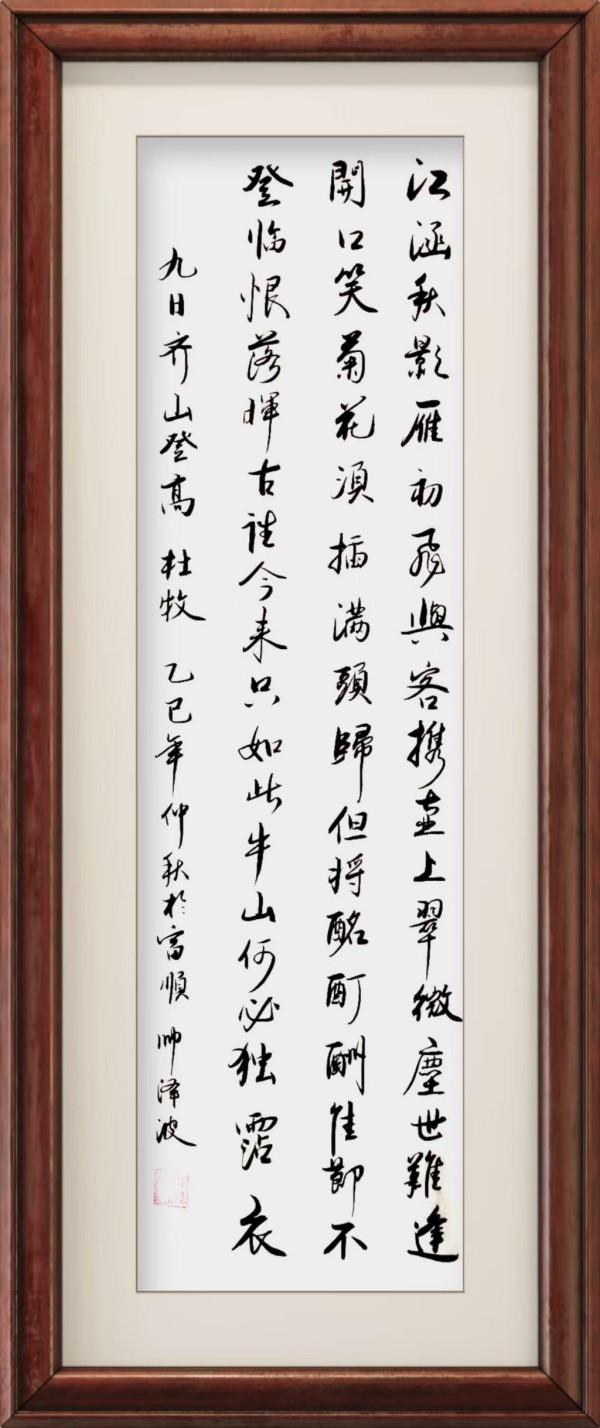 江涵秋影雁初飛與客携壺上翠微塵世難逢
開口笑菊花須插滿頭歸但将酩酊酬佳節不
登临恨落暉古往今来只如此牛山何必独霑衣
九日齐山登高 杜牧 乙巳年仲秋於富順 帅泽波